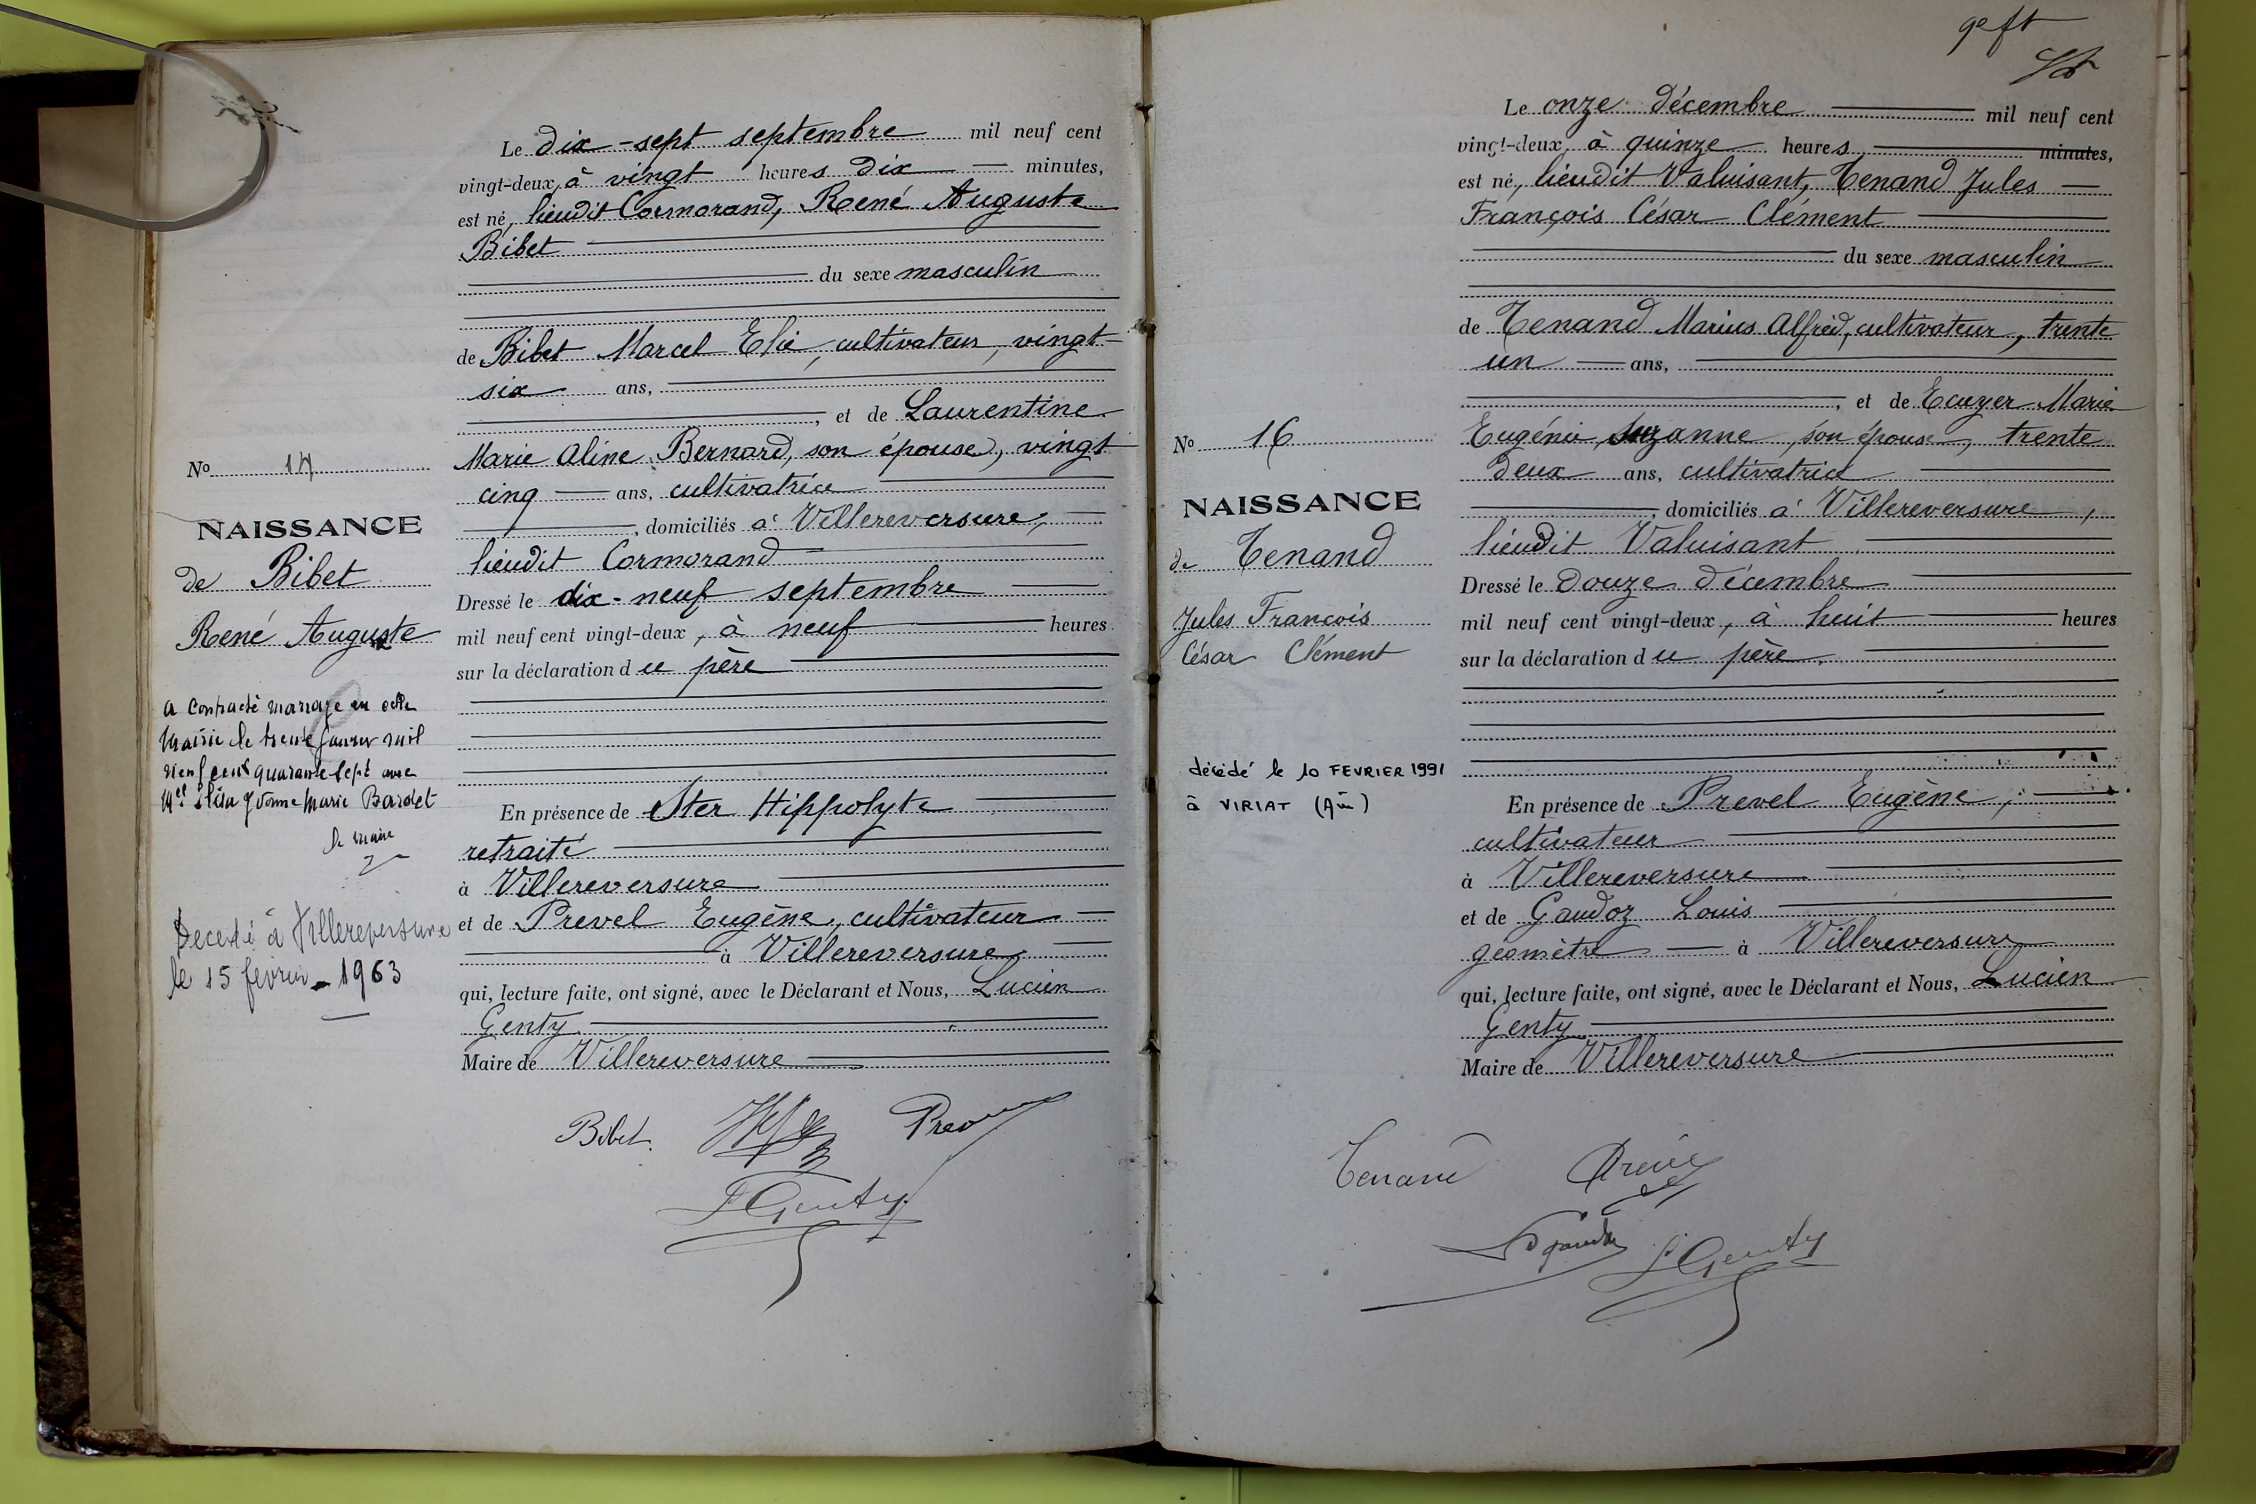 Le dix-sept septembre mil neuf cent
vingt-deux, à vingt heures dix minutes,
est né, lieudit Cormorand, René Auguste
Bibet
du sexe masculin
de Bibet Marcel Elie, cultivateur, vingt-
six ans,
, et de Laurentine
Marie Aline Bernard, son épouse, vingt
cinq ans, cultivatrice
, domiciliés à Villereversure,
lieudit Cormorand
Dressé le dix-neuf septembre
mil neuf cent vingt-deux, à neuf heures
sur la déclaration du père
En présence de Ster Hippolyte
retraité
à Villereversure
et de Prevel Eugène, cultivateur
à Villereversure
qui, lecture faite, ont signé, avec le Déclarant et Nous, Lucien
Genty
Maire de Villereversure
Bibet
LGenty
No
NAISSANCE
de Bibet
René Auguste
a contracté mariage en cette
Mairie le trente janvier mil
neuf cent quarante sept avec
Melle Yvonne Marie
le maire
Décédé à Villereversure
le 15 février 1963
Le onze décembre mil neuf cent
vingt-deux, à quinze heures minutes,
est né, lieudit Valuisant, Tenand Jules
François César Clément
du sexe masculin
de Tenand Marius Alfred, cultivateur, trente
un ans,
, et de Ecuyer Marie
Eugénie Suzanne, son épouse, trente
deux ans, cultivatrice
, domiciliés à Villereversure,
lieudit Valuisant
Dressé le douze décembre
mil neuf cent vingt-deux, à huit heures
sur la déclaration du père.
En présence de Prevel Eugène,
cultivateur
à Villereversure
et de Gaudoz Louis
géomètre à Villereversure
qui, lecture faite, ont signé, avec le Déclarant et Nous, Lucien
Genty
Maire de Villereversure
Tenand
LGenty
No 16
NAISSANCE
de Tenand
Jules François
César Clément
décédé le 10 FEVRIER 1991
à VIRIAT (Ain)